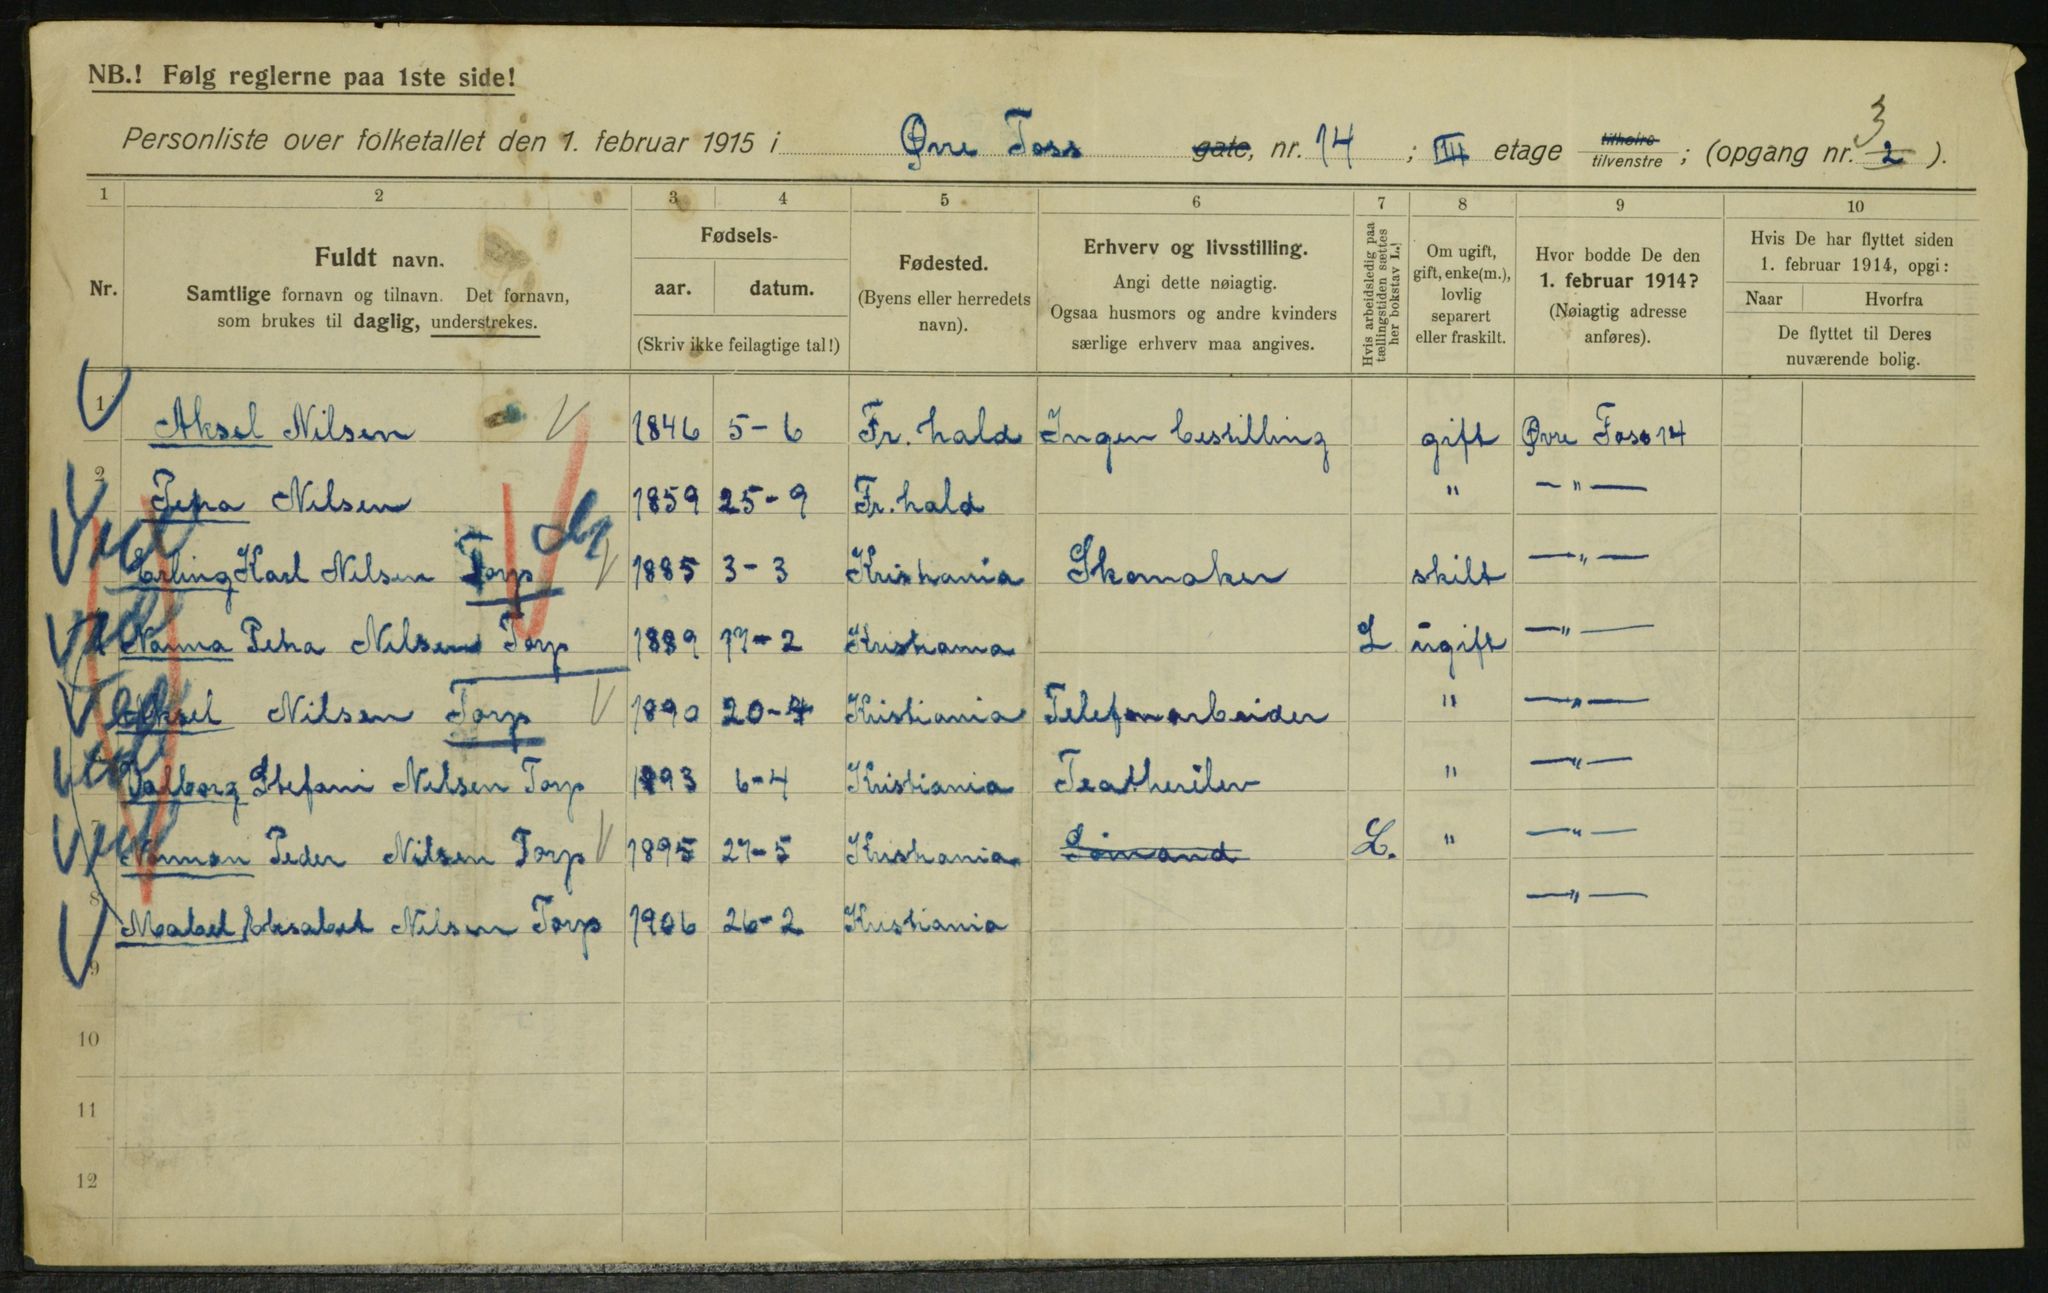 NB.! Følg reglerne paa 1ste side!
Personliste over folketallet den 1. februar 1915 i Øvre Foss gate, nr. 14 ; III etage tilhøire tilvenstre ; (opgang nr. 2 3 ).
1 2 3 4 5 6 7 8 9 10
Nr.
Fuldt navn.
Samtlige fornavn og tilnavn. Det fornavn,
som brukes til daglig, understrekes.
Fødsels-
aar. datum.
(Skriv ikke feilagtige tal!)
Fødested.
(Byens eller herredets
navn).
Erhverv og livsstilling.
Angi dette nøiagtig.
Ogsaa husmors og andre kvinders
særlige erhverv maa angives.
Hvis arbeidsledig paa
tællingstiden sættes
her bokstav L.!
Om ugift,
gift, enke(m.),
lovlig
separert
eller fraskilt.
Hvor bodde De den
1. februar 1914?
(Nøiagtig adresse
anføres).
Hvis De har flyttet siden
1. februar 1914, opgi:
Naar Hvorfra
De flyttet til Deres
nuværende bolig.
1 Aksel Nilsen 1846 5-6 Fr. hald Ingen bestilling gift Øvre Foss 14
2 Petra Nilsen 1859 25-9 Fr. hald " — " —
Erling Karl Nilsen Torp 1885 3-3 Kristiania Skomaker skilt — " —
Nanna Petra Nilsen Torp 1889 17-2 Kristiania L ugift — " —
Aksel Nilsen Torp 1890 20-4 Kristiania Telefonarbeider " — " —
Valborg Stefani Nilsen Torp 1893 6-4 Kristiania Teatherelev " — " —
7 Norman Peder Nilsen Torp 1895 27-5 Kristiania Sömand L. " — " —
8 Mabel Elisabet Nilsen Torp 1906 26-2 Kristiania — " —
9
10
11
12